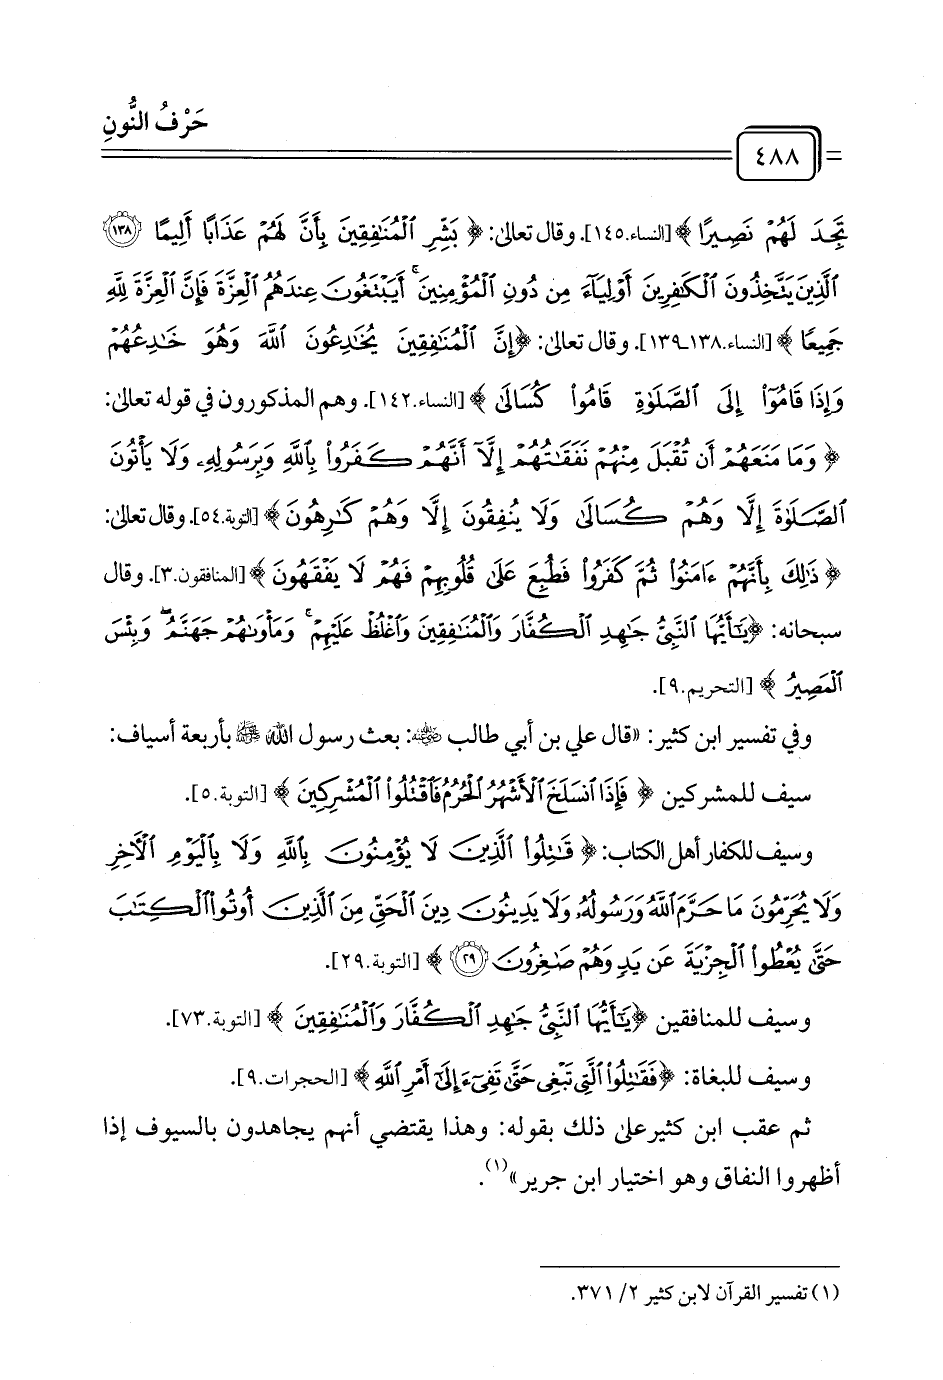 حَرْفُ النُّونِ
٤٨٨
تَجِدَ لَهُمْ نَصِيرًا ﴾ [النساء.١٤٥]. وقال تعالىٰ: ﴿ بَشِّرِ ٱلْمُنَٰفِقِينَ بِأَنَّ لَهُمْ عَذَابًا أَلِيمًا ١٣٨
ٱلَّذِينَ يَتَّخِذُونَ ٱلْكَٰفِرِينَ أَوْلِيَآءَ مِن دُونِ ٱلْمُؤْمِنِينَ ۚ أَيَبْتَغُونَ عِندَهُمُ ٱلْعِزَّةَ فَإِنَّ ٱلْعِزَّةَ لِلَّهِ
جَمِيعًا ﴾ [النساء.١٣٨ـ١٣٩]. وقال تعالىٰ: ﴿إِنَّ ٱلْمُنَٰفِقِينَ يُخَٰدِعُونَ ٱللَّهَ وَهُوَ خَٰدِعُهُمْ
وَإِذَا قَامُوٓا۟ إِلَى ٱلصَّلَوٰةِ قَامُوا۟ كُسَالَىٰ ﴾ [النساء.١٤٢]. وهم المذكورون في قوله تعالىٰ:
﴿ وَمَا مَنَعَهُمْ أَن تُقْبَلَ مِنْهُمْ نَفَقَٰتُهُمْ إِلَّآ أَنَّهُمْ كَفَرُوا۟ بِٱللَّهِ وَبِرَسُولِهِۦ وَلَا يَأْتُونَ
ٱلصَّلَوٰةَ إِلَّا وَهُمْ كُسَالَىٰ وَلَا يُنفِقُونَ إِلَّا وَهُمْ كَٰرِهُونَ ﴾ [التوبة.٥٤]. وقال تعالىٰ:
﴿ ذَٰلِكَ بِأَنَّهُمْ ءَامَنُوا۟ ثُمَّ كَفَرُوا۟ فَطُبِعَ عَلَىٰ قُلُوبِهِمْ فَهُمْ لَا يَفْقَهُونَ ﴾ [المنافقون.٣]. وقال
سبحانه: ﴿يَٰٓأَيُّهَا ٱلنَّبِىُّ جَٰهِدِ ٱلْكُفَّارَ وَٱلْمُنَٰفِقِينَ وَٱغْلُظْ عَلَيْهِمْ ۚ وَمَأْوَىٰهُمْ جَهَنَّمُ ۖ وَبِئْسَ
ٱلْمَصِيرُ ﴾ [التحريم.٩].
وفي تفسير ابن كثير: «قال علي بن أبي طالب رضي الله عنه: بعث رسول الله ﷺ بأربعة أسياف:
سيف للمشركين ﴿ فَإِذَا ٱنسَلَخَ ٱلْأَشْهُرُ ٱلْحُرُمُ فَٱقْتُلُوا۟ ٱلْمُشْرِكِينَ ﴾ [التوبة.٥].
وسيف للكفار أهل الكتاب: ﴿ قَٰتِلُوا۟ ٱلَّذِينَ لَا يُؤْمِنُونَ بِٱللَّهِ وَلَا بِٱلْيَوْمِ ٱلْـَٔاخِرِ
وَلَا يُحَرِّمُونَ مَا حَرَّمَ ٱللَّهُ وَرَسُولُهُۥ وَلَا يَدِينُونَ دِينَ ٱلْحَقِّ مِنَ ٱلَّذِينَ أُوتُوا۟ ٱلْكِتَٰبَ
حَتَّىٰ يُعْطُوا۟ ٱلْجِزْيَةَ عَن يَدٍ وَهُمْ صَٰغِرُونَ ٢٩ ﴾ [التوبة.٢٩].
وسيف للمنافقين ﴿يَٰٓأَيُّهَا ٱلنَّبِىُّ جَٰهِدِ ٱلْكُفَّارَ وَٱلْمُنَٰفِقِينَ ﴾ [التوبة.٧٣].
وسيف للبغاة: ﴿فَقَٰتِلُوا۟ ٱلَّتِى تَبْغِى حَتَّىٰ تَفِىٓءَ إِلَىٰٓ أَمْرِ ٱللَّهِ ﴾ [الحجرات.٩].
ثم عقب ابن كثير علىٰ ذلك بقوله: وهذا يقتضي أنهم يجاهدون بالسيوف إذا
أظهروا النفاق وهو اختيار ابن جرير»(١).
(١) تفسير القرآن لابن كثير ٢/ ٣٧١.